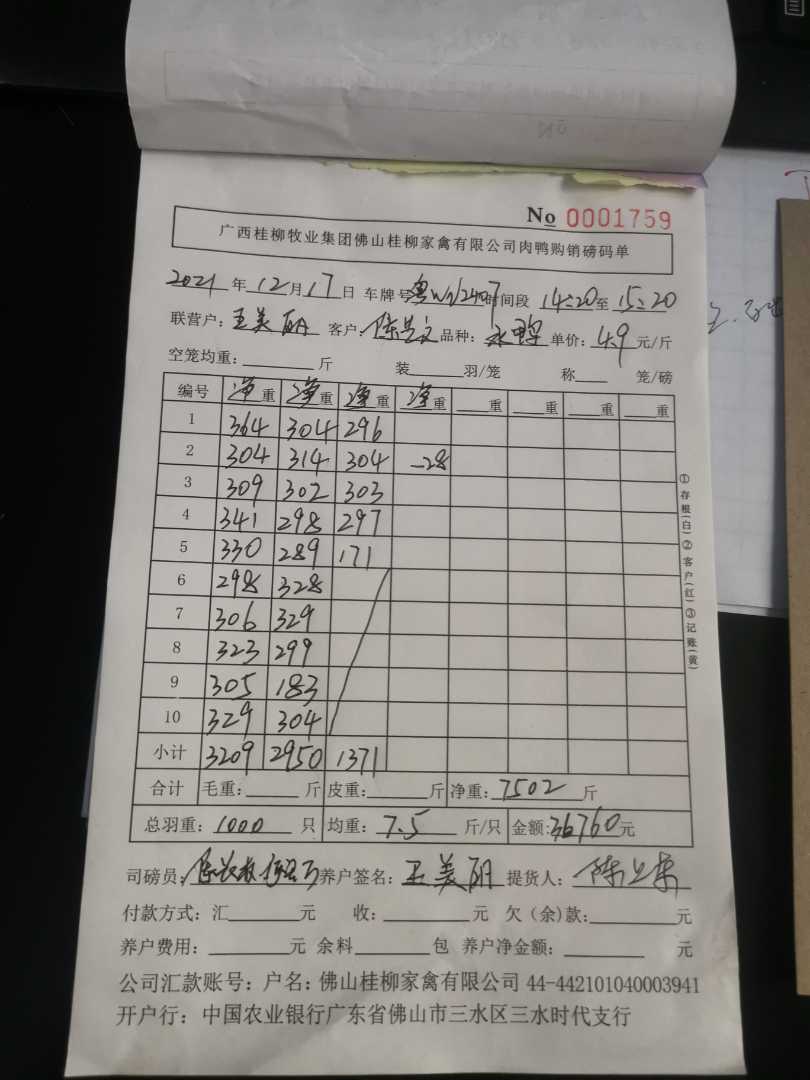 No 0001759
广西桂柳牧业集团佛山桂柳家禽有限公司肉鸭购销磅码单
2021年12月17日 车牌号 时间段 14:20至15:20
联营户:王美丽 客户: 品种: 单价:4.9元/斤
空笼均重:斤 装羽/笼 称笼/磅
编号 净重 净重 净重 净重 重 重 重 重
1 364 304 296
2 304 314 304 -28
3 309 302 303
4 341 298 297
5 330 289 171
6 298 328
7 306 329
8 323 299
9 305 183
10 329 304
小计 3209 2950 1371
合计 毛重:斤 皮重:斤 净重:7502斤
总羽重:1000只 均重:7.5斤/只 金额:36760元
司磅员: 养户签名:王美丽 提货人:
付款方式:汇元 收:元 欠(余)款:元
养户费用:元 余料包 养户净金额:元
公司汇款账号:户名:佛山桂柳家禽有限公司 44-442101040003941
开户行:中国农业银行广东省佛山市三水区三水时代支行
①存根(白)②客户(红)③记账(黄)